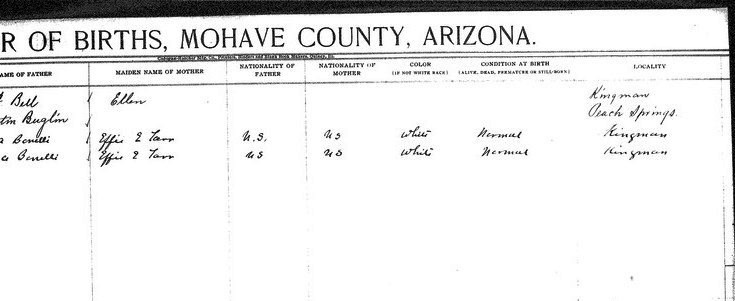 R OF BIRTHS, MOHAVE COUNTY, ARIZONA.
AME OF FATHER MAIDEN NAME OF MOTHER NATIONALITY OF FATHER NATIONALITY OF MOTHER COLOR (IF NOT WHITE RACE) CONDITION AT BIRTH (ALIVE, DEAD, PREMATURE OR STILL-BORN) LOCALITY
Bell Ellen Kingman
Peach Springs.
Bonelli Effie E Tarr U.S. US White Normal Kingman
Bonelli Effie E Tarr US US White Normal Kingman